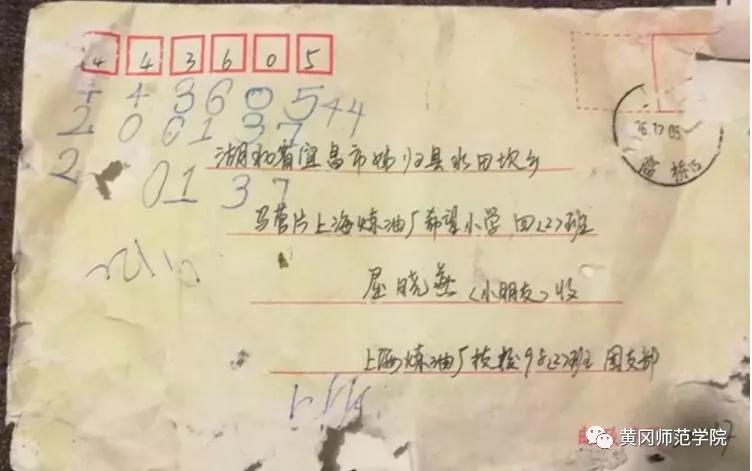 443605
4 4 3 6 0 5 44
2 0 0 1 3 7
2 0 1 3 7
湖北省宜昌市姊归县水田坝乡
马营片上海炼油厂希望小学 四<2>班
屈晓燕<小朋友>收
上海炼油厂技校95<2>班 团支部
高桥
黄冈师范学院